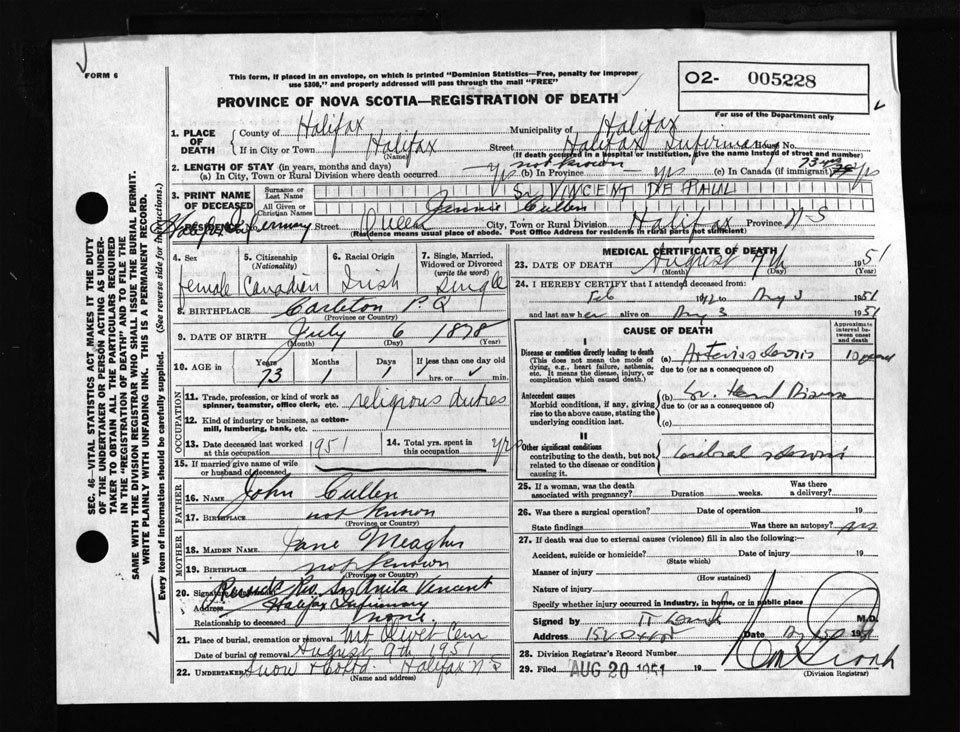 FORM 6
This form, if placed in an envelope, on which is printed "Dominion Statistics—Free, penalty for improper
use $300," and properly addressed will pass through the mail "FREE"
O2- 005228
For use of the Department only
PROVINCE OF NOVA SCOTIA—REGISTRATION OF DEATH
1. PLACE OF DEATH
County of Halifax Municipality of Halifax
If in City or Town Halifax (Name) Street Halifax Infirmary House No.
(If death occurred in a hospital or institution, give the name instead of street and number)
2. LENGTH OF STAY (in years, months and days)
(a) In City, Town or Rural Division where death occurred yrs not known (b) In Province yrs (c) In Canada (if immigrant) 73 yrs
3. PRINT NAME OF DECEASED
Surname or Last Name Sr. VINCENT DE PAUL
All Given or Christian Names Jennie Cullen
RESIDENCE Halifax Infirmary Street Queen City, Town or Rural Division Halifax Province N-S
(Residence means usual place of abode. Post Office Address for residents in rural districts not sufficient)
4. Sex female
5. Citizenship (Nationality) Canadian
6. Racial Origin Irish
7. Single, Married, Widowed or Divorced (write the word) Single
8. BIRTHPLACE Carleton P.Q
(Province or Country)
9. DATE OF BIRTH July 6 1878
(Month) (Day) (Year)
10. AGE in Years 73 Months 1 Days 1 If less than one day old hrs. or min.
OCCUPATION
11. Trade, profession, or kind of work as spinner, teamster, office clerk, etc. religious duties
12. Kind of industry or business, as cotton-mill, lumbering, bank, etc.
13. Date deceased last worked at this occupation 1951
14. Total yrs. spent in this occupation yrs
15. If married give name of wife or husband of deceased
FATHER
16. NAME John Cullen
17. BIRTHPLACE not known
(Province or Country)
MOTHER
18. MAIDEN NAME Jane Meagher
19. BIRTHPLACE not known
(Province or Country)
20. Signature Rev. Sr. Anita Vincent
Address Halifax Infirmary
Relationship to deceased none
21. Place of burial, cremation or removal Mt Olivet Cem
Date of burial or removal August 9th 1951
22. UNDERTAKER Snow & Co Ltd. Halifax N S
(Name and address)
MEDICAL CERTIFICATE OF DEATH
23. DATE OF DEATH August 7th 1951
(Month) (Day) (Year)
24. I HEREBY CERTIFY that I attended deceased from:
Feb Aug 3 1951
and last saw her alive on Aug 3 1951
CAUSE OF DEATH
Approximate interval between onset and death
I
Disease or condition directly leading to death (a)
(This does not mean the mode of dying, e.g., heart failure, asthenia, etc. It means the disease, injury, or complication which caused death.)
due to (or as a consequence of)
Antecedent causes
Morbid conditions, if any, giving rise to the above cause, stating the underlying condition last.
(b) Heart Disease
due to (or as a consequence of)
(c)
II
Other significant conditions
contributing to the death, but not related to the disease or condition causing it.
Cerebral sclerosis
25. If a woman, was the death associated with pregnancy? Duration weeks. Was there a delivery?
26. Was there a surgical operation? Date of operation 19
State findings Was there an autopsy?
27. If death was due to external causes (violence) fill in also the following:—
Accident, suicide or homicide? (State which) Date of injury 19
Manner of injury (How sustained)
Nature of injury
Specify whether injury occurred in industry, in home, or in public place
Signed by M.D.
Address Date
28. Division Registrar's Record Number
29. Filed AUG 20 1951 19
(Division Registrar)
SEC. 46—VITAL STATISTICS ACT MAKES IT THE DUTY
OF THE UNDERTAKER OR PERSON ACTING AS UNDER-
TAKER TO OBTAIN ALL THE PARTICULARS REQUIRED
IN THE "REGISTRATION OF DEATH" AND TO FILE THE
SAME WITH THE DIVISION REGISTRAR WHO SHALL ISSUE THE BURIAL PERMIT.
WRITE PLAINLY WITH UNFADING INK. THIS IS A PERMANENT RECORD.
Every item of information should be carefully supplied. (See reverse side for instructions.)